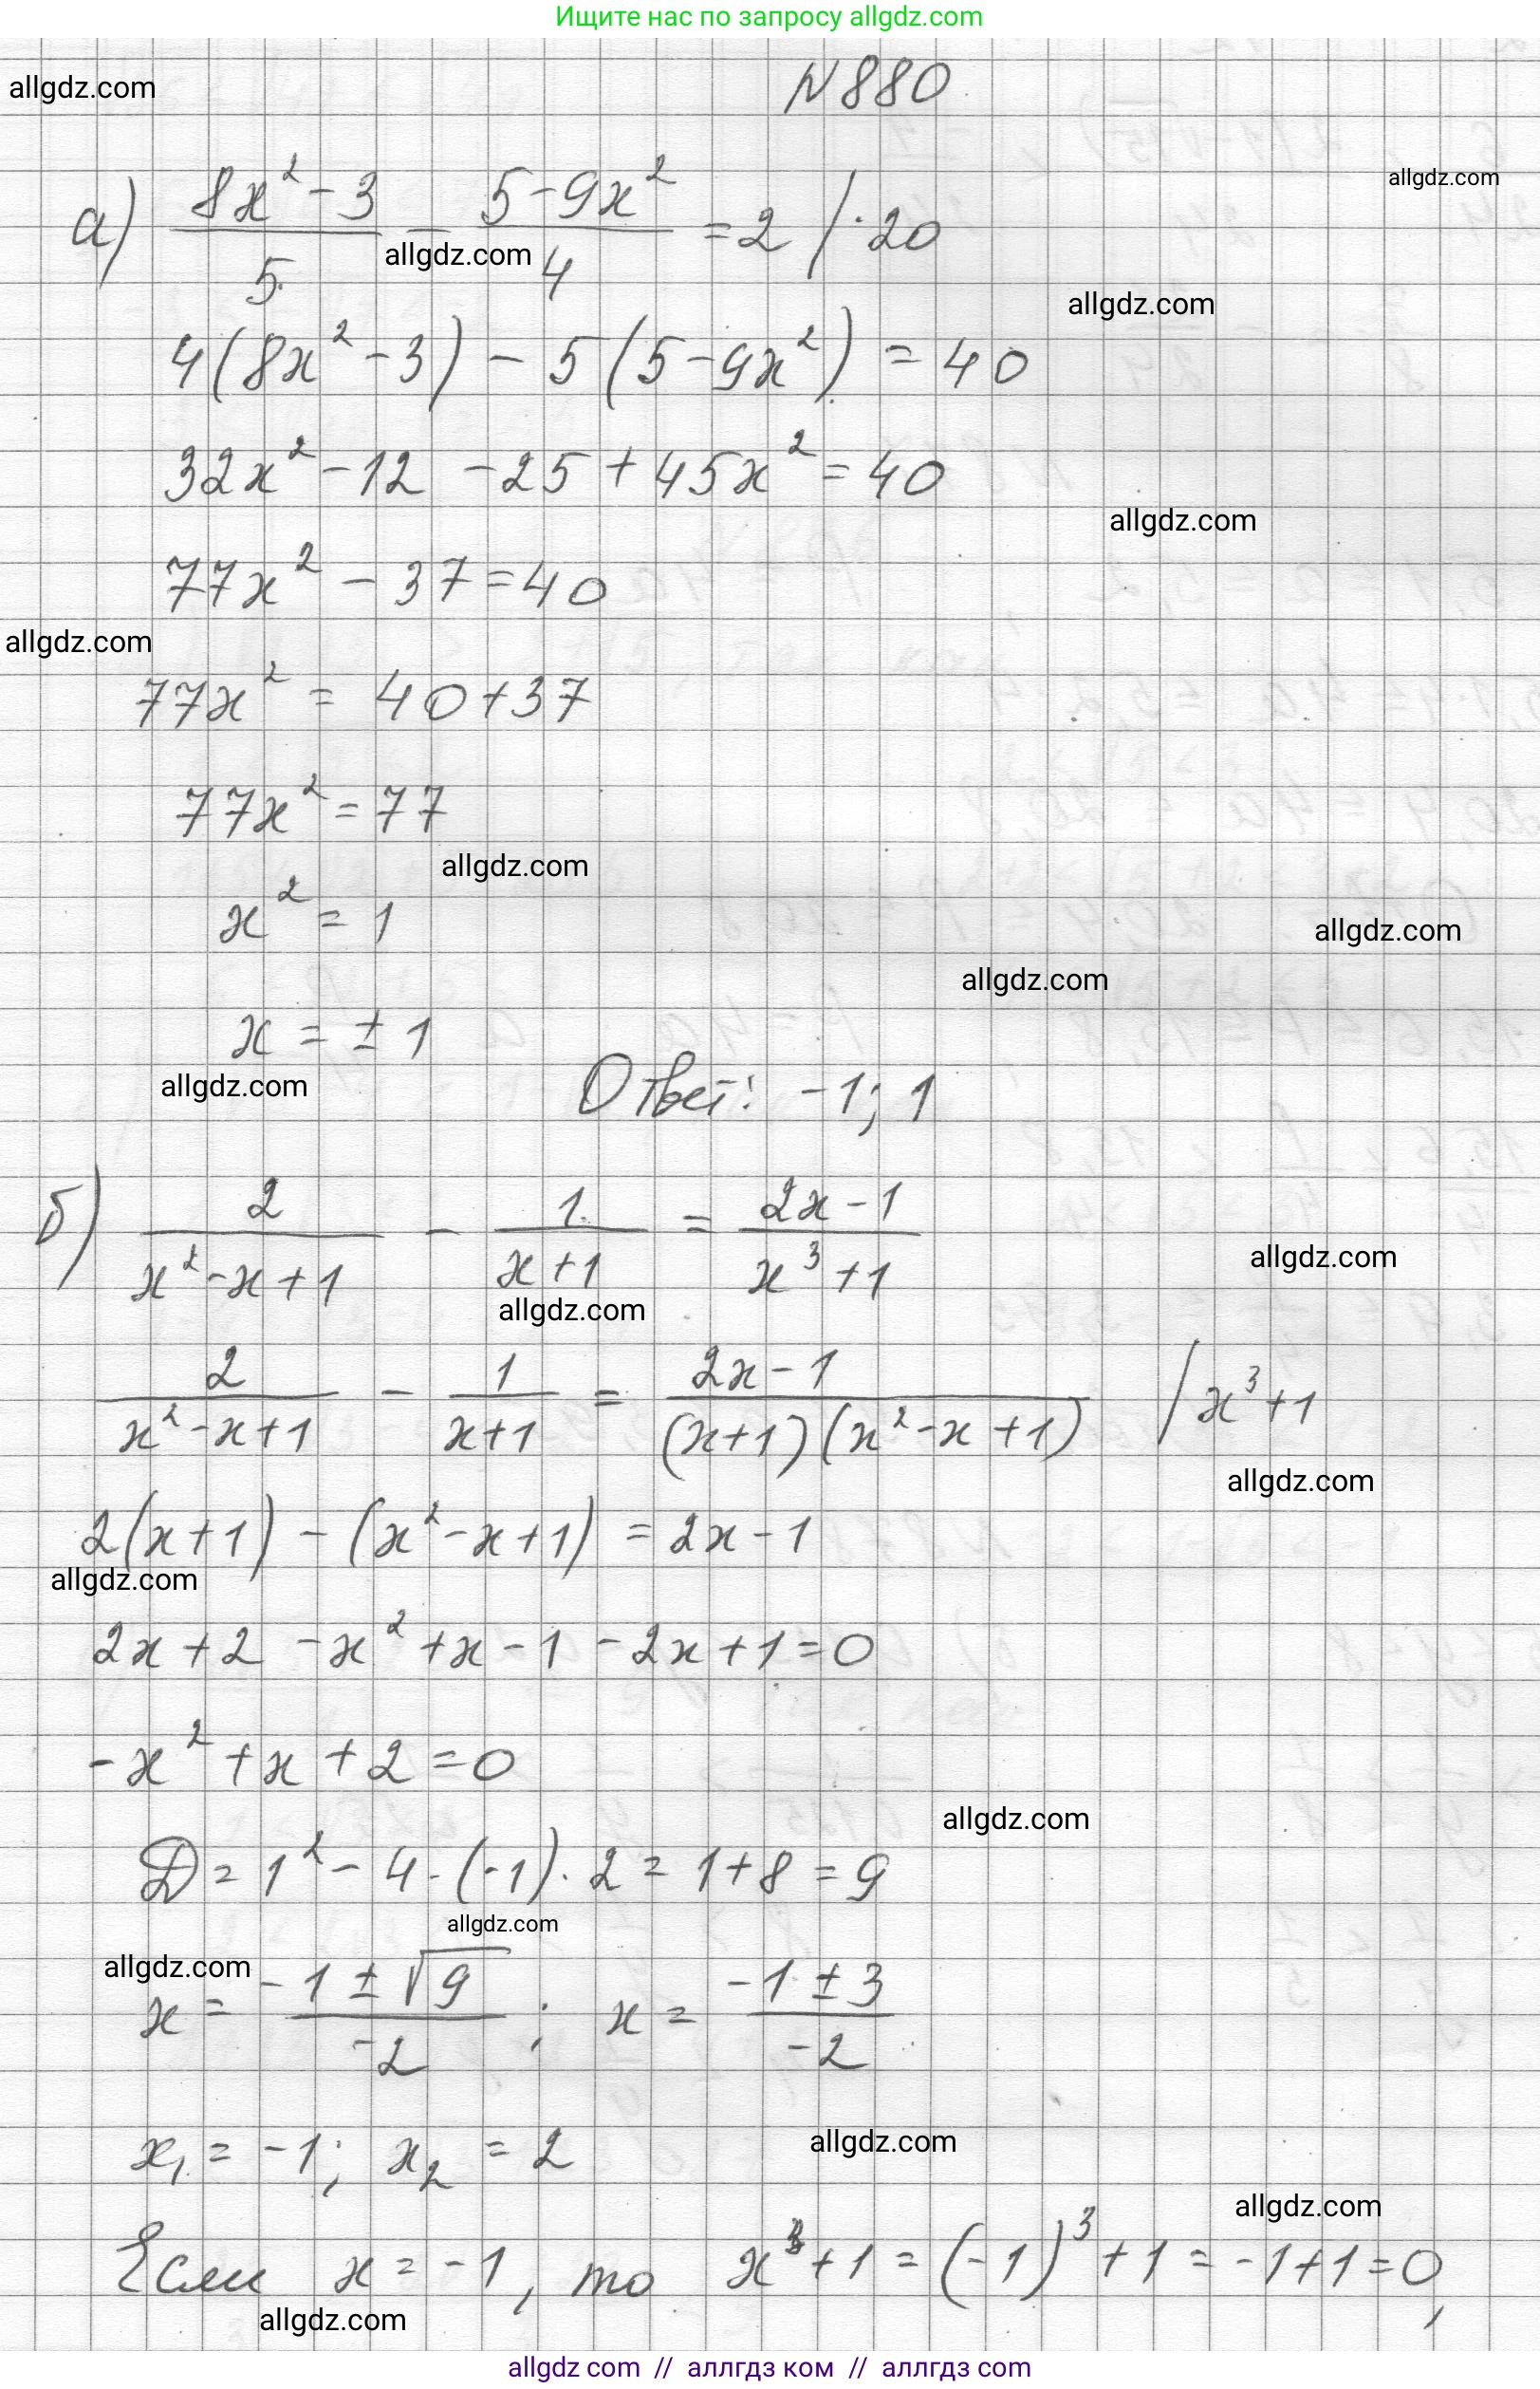 Ищите нас по запросу allgdz.com
allgdz.com
N 880
allgdz.com
а) (8x² - 3)/5 - (5 - 9x²)/4 = 2 / · 20
allgdz.com
allgdz.com
4(8x² - 3) - 5(5 - 9x²) = 40
32x² - 12 - 25 + 45x² = 40
allgdz.com
77x² - 37 = 40
allgdz.com
77x² = 40 + 37
77x² = 77
allgdz.com
x² = 1
allgdz.com
allgdz.com
x = ± 1
allgdz.com
Ответ: -1; 1
б) 2/(x² - x + 1) - 1/(x + 1) = (2x - 1)/(x³ + 1)
allgdz.com
allgdz.com
2/(x² - x + 1) - 1/(x + 1) = (2x - 1)/((x + 1)(x² - x + 1)) / x³ + 1
allgdz.com
2(x + 1) - (x² - x + 1) = 2x - 1
allgdz.com
2x + 2 - x² + x - 1 - 2x + 1 = 0
-x² + x + 2 = 0
allgdz.com
D = 1² - 4 · (-1) · 2 = 1 + 8 = 9
allgdz.com
allgdz.com
x = (-1 ± √9)/(-2) ; x = (-1 ± 3)/(-2)
x₁ = -1; x₂ = 2
allgdz.com
allgdz.com
Если x = -1, то x³ + 1 = (-1)³ + 1 = -1 + 1 = 0,
allgdz.com
allgdz com // аллгдз ком // аллгdз com